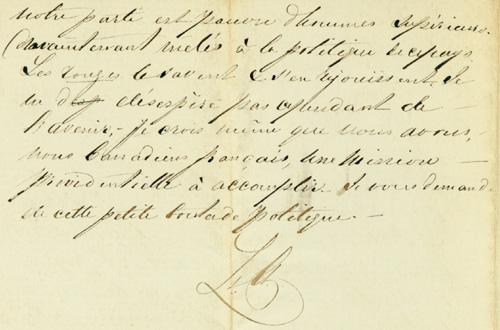 notre parti est pauvre d'hommes supérieurs
maintenant mêlés à la politique du pays
Les rouges le savent & s'en réjouissent. Je
ne désespère pas cependant de
l'avenir. - Je crois même que nous avons,
nous Canadiens français, une mission
providentielle à accomplir. Je vous demande
cette petite boutade politique. -